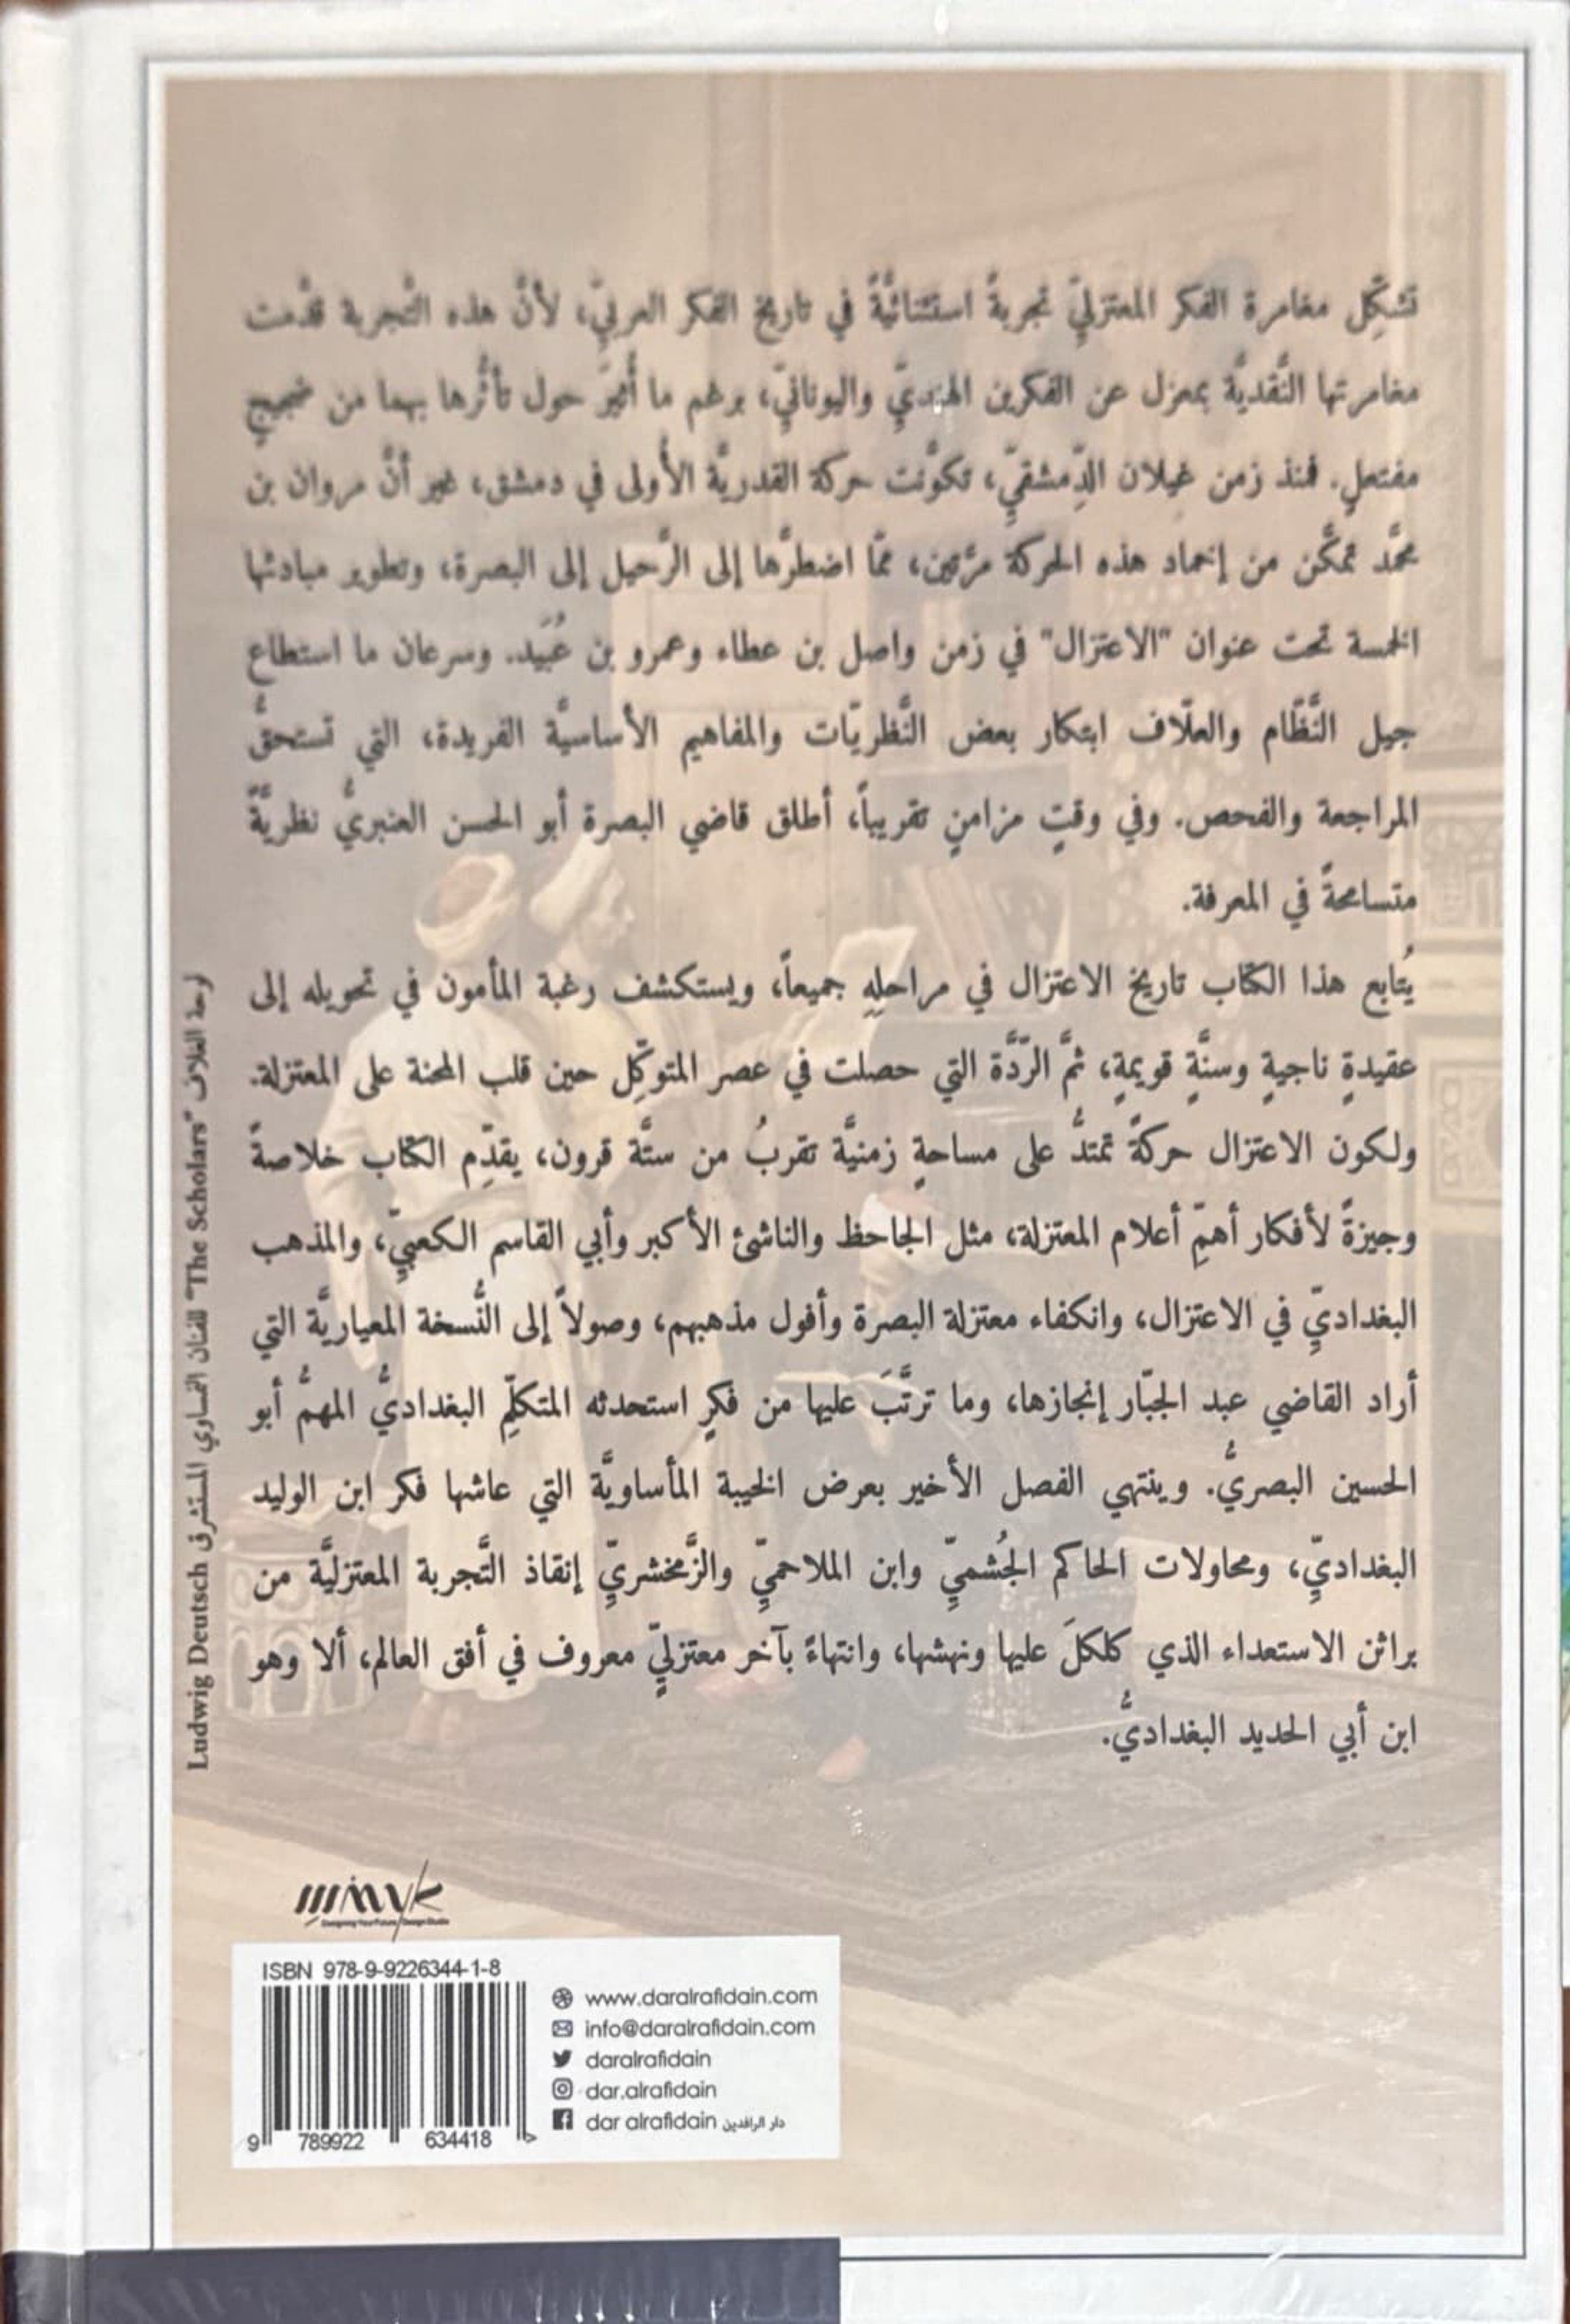 تشكِّل مغامرة الفكر المعتزليِّ تجربةً استثنائيَّةً في تاريخ الفكر العربيِّ، لأنَّ هذه التَّجربة قدَّمت
مغامرتها النَّقديَّة بمعزل عن الفكرين الهنديِّ واليونانيِّ، برغم ما أُثيرَ حول تأثُّرها بهما من ضجيجٍ
مفتعلٍ. فمنذ زمن غيلان الدِّمشقيِّ، تكوَّنت حركة القدريَّة الأولى في دمشق، غير أنَّ مروان بن
محمَّد تمكَّن من إخماد هذه الحركة مرَّتين، ممَّا اضطرَّها إلى الرَّحيل إلى البصرة، وتطوير مبادئها
الخمسة تحت عنوان "الاعتزال" في زمن واصل بن عطاء وعمرو بن عُبَيد. وسرعان ما استطاع
جيل النَّظَّام والعلّاف ابتكار بعض النَّظريّات والمفاهيم الأساسيَّة الفريدة، التي تستحقُّ
المراجعة والفحص. وفي وقتٍ مزامنٍ تقريباً، أطلق قاضي البصرة أبو الحسن العنبريُّ نظريَّةً
متسامحةً في المعرفة.
يُتابع هذا الكتاب تاريخ الاعتزال في مراحلِهِ جميعاً، ويستكشف رغبة المأمون في تحويله إلى
عقيدةٍ ناجيةٍ وسنَّةٍ قويمةٍ، ثمَّ الرِّدَّة التي حصلت في عصر المتوكِّل حين قلب المحنة على المعتزلة.
ولكون الاعتزال حركةً تمتدُّ على مساحةٍ زمنيَّة تقربُ من ستَّة قرون، يقدِّم الكتاب خلاصةً
وجيزةً لأفكار أهمِّ أعلام المعتزلة، مثل الجاحظ والناشئ الأكبر وأبي القاسم الكعبيِّ، والمذهب
البغداديِّ في الاعتزال، وانكفاء معتزلة البصرة وأفول مذهبهم، وصولاً إلى النُّسخة المعياريَّة التي
أراد القاضي عبد الجبّار إنجازها، وما ترتَّبَ عليها من فكرٍ استحدثه المتكلِّم البغداديُّ المهمُّ أبو
الحسين البصريُّ. وينتهي الفصل الأخير بعرض الخيبة المأساويَّة التي عاشها فكر ابن الوليد
البغداديِّ، ومحاولات الحاكم الجُشميِّ وابن الملاحميِّ والزَّمخشريِّ إنقاذ التَّجربة المعتزليَّة من
براثن الاستعداء الذي كلكلَ عليها ونهشها، وانتهاءً بآخر معتزليٍّ معروف في أفق العالم، ألا وهو
ابن أبي الحديد البغداديُّ.
لوحة الغلاف "The Scholars" للفنان النمساوي المستشرق Ludwig Deutsch
ISBN 978-9-9226344-1-8
9 789922 634418 >
www.daralrafidain.com
info@daralrafidain.com
daralrafidain
dar.alrafidain
dar alrafidain دار الرافدين